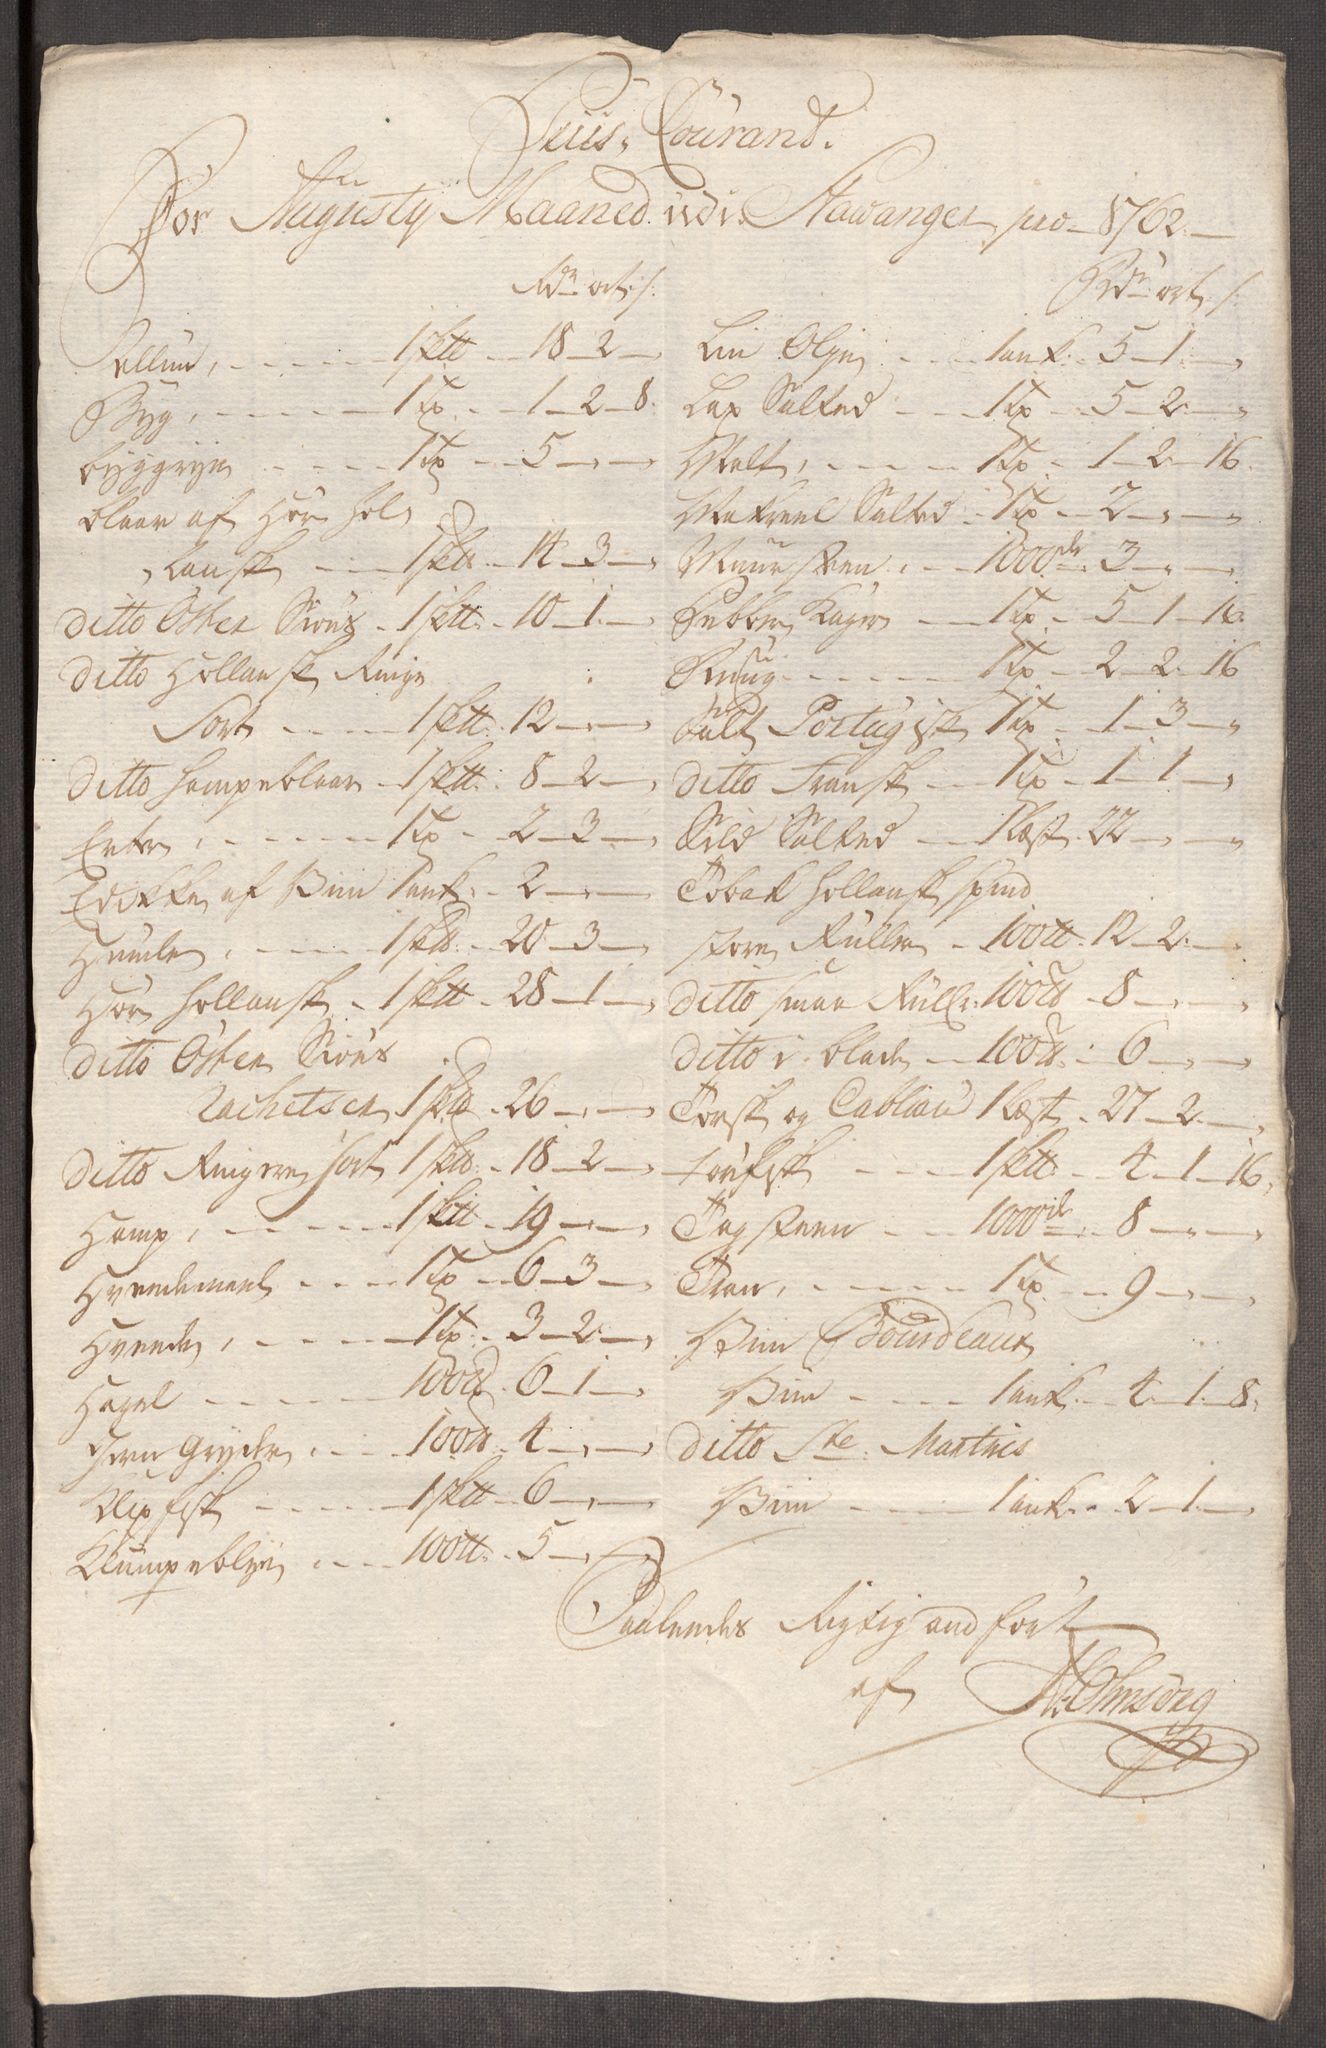 Priis, Courant.
For Augusty Maaned udi Stawanger pro 1762
Rdr ort s:
Allun, 1 sktt 18 2
Byg, 1 tp 1 2 8
byggryn 1 tp 5
blaar af Hør hol¬
lansk 1 sktt 14 3
ditto Øster Siøes 1 sktt 10 1
ditto Hollansk Ringe
Sort 1 sktt 12
ditto hampeblaar 1 sktt 8 2
Erter, 1 tp 2 3
Edikke af Viin 1 ank 2
Humle, 1 sktt 20 3
Hør hollansk 1 sktt 28 1
ditto Øster Siøes
Rachetser 1 sktt 26
ditto Ringere sort 1 sktt 18 2
Hamp, 1 sktt 19
Hvedemeel 1 tp 6 3
Hvede, 1 tp 3 2
Hagel 100 tt 6 1
Jern Gryder 100 tt 4
Klipfisk 1 sktt 6
Klumpeblye 100 tt 5
Rdr ort s:
Lin Olje 1 ank 5 1
Lax Salted 1 tp 5 2
Malt, 1 tp 1 2 16
Makreel Salted 1 tp 2
Muursteen 1000de 3
Pebber Kager 1 tp 5 1 16
Ruug 1 tp 2 2 16
Salt Portugisk 1 tp 1 3
ditto Fransk 1 tp 1 1
Sild Salted 1 læst 22
Tobak hollansk spind
store Ruller 100 tt 12 2
ditto smaa Rull: 100 tt 8
ditto i blade 100 tt 6
Torsk og Cabliau 1 Læst 27 2
Tørfisk 1 sktt 4 1 16
Tagsteen 1000de 8
Tran, 1 tp 9
Viin Bourdeaux
Viin 1 ank 4 1 8
ditto Ste Martins
Viin 1 ank 2 1
Saaledes Rigtig anført
af